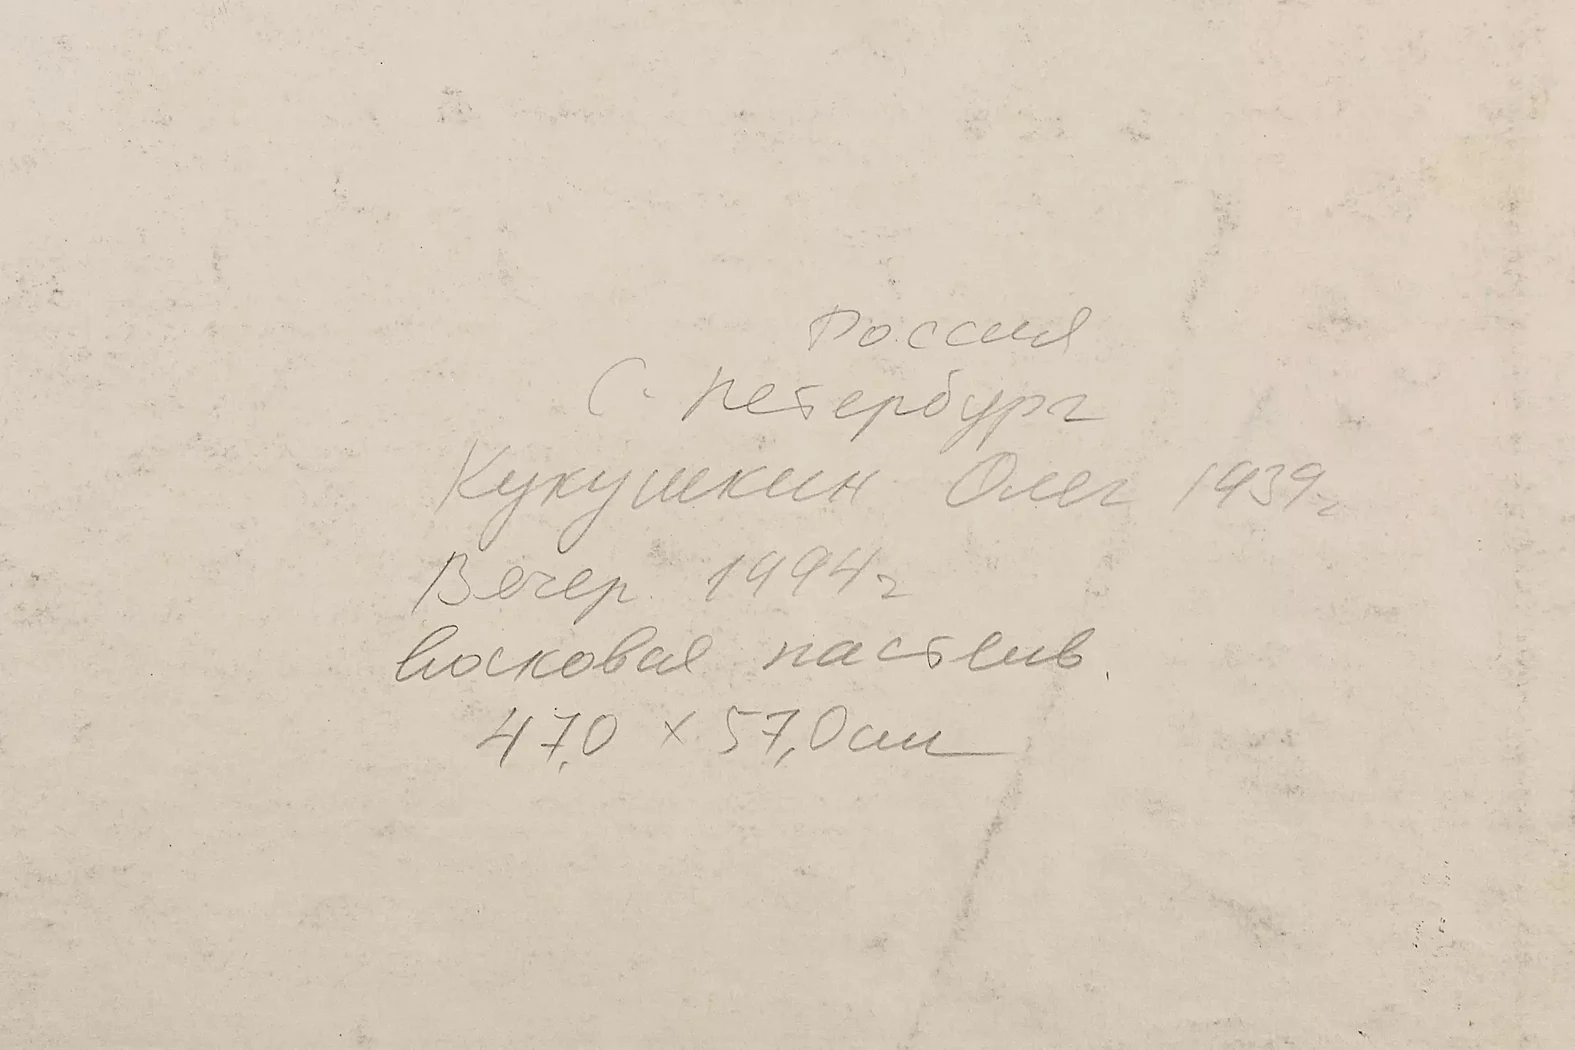 Россия
С. Петербург
Кукушкин Олег 1939г
Вечер 1994г
восковая пастель.
47,0 х 57,0 см